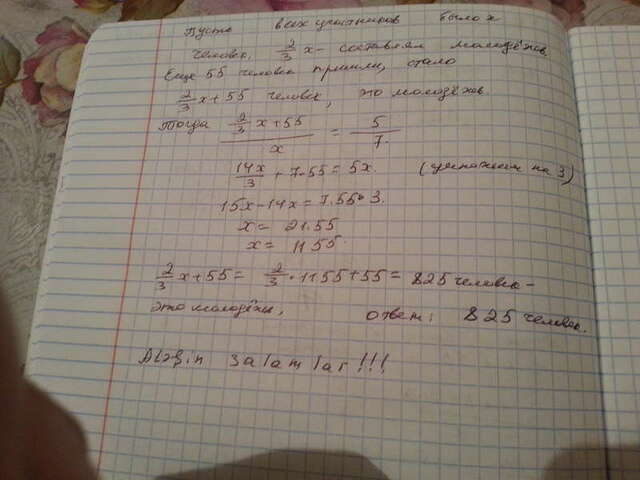 Пусть всех участников было x
человек. 2/3 x - составлял молодёжь
Еще 55 человек пришли, стало
2/3 x + 55 человек, это молодёжь
Тогда (2/3 x + 55)/x = 5/7.
14x/3 + 7·55 = 5x. (умножим на 3)
15x - 14x = 7.55·3.
x = 21.55
x = 1155.
2/3 x + 55 = 2/3 · 1155 + 55 = 825 человек -
это молодёжь, ответ: 825 человек.
salamlar!!!